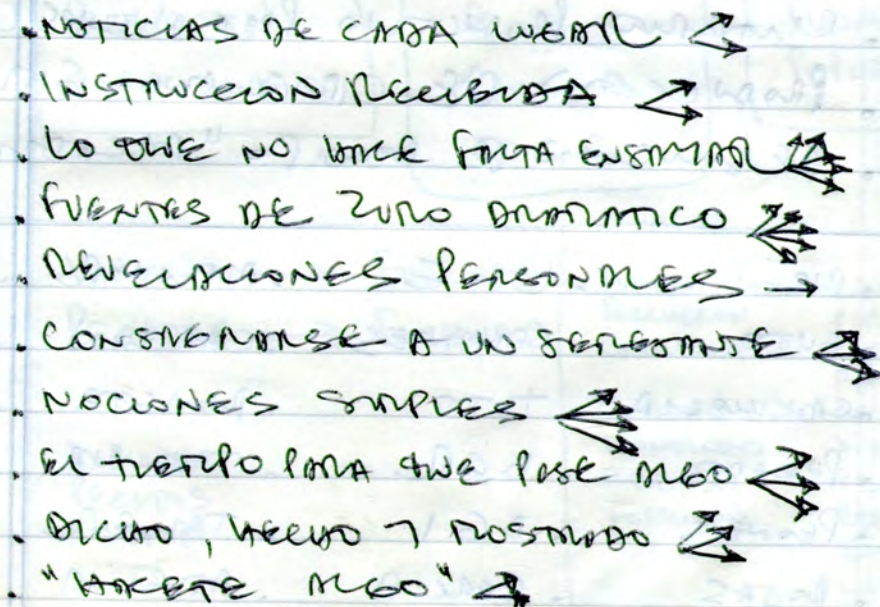 . NOTICIAS DE CADA LUGAR
. INSTRUCCION RECIBIDA
. LO QUE NO HACE FALTA ENSAYAR
. FUENTES DE ZUMO DRAMATICO
. REVELACIONES PERSONALES
. CONSAGRARSE A UN SEMEJANTE
. NOCIONES SIMPLES
. EL TIEMPO PARA QUE PASE ALGO
. DICHO, HECHO Y MOSTRADO
. "HACETE ALGO"